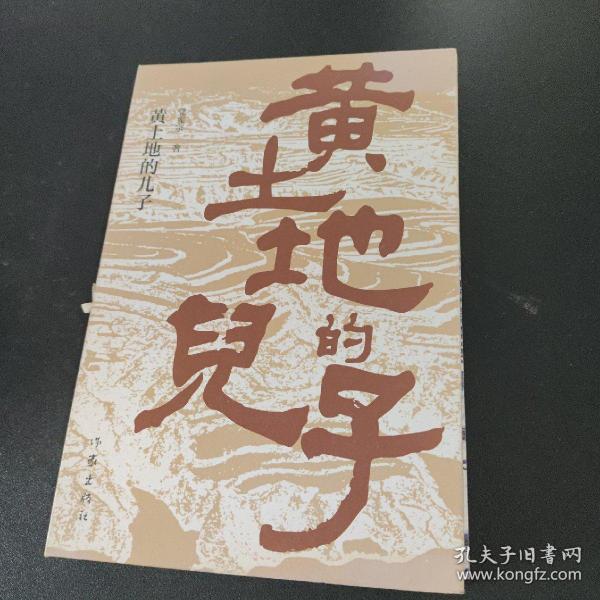 黄土地的兒子
著
黄土地的儿子
作家出版社
孔夫子旧書网
www.kongfz.com